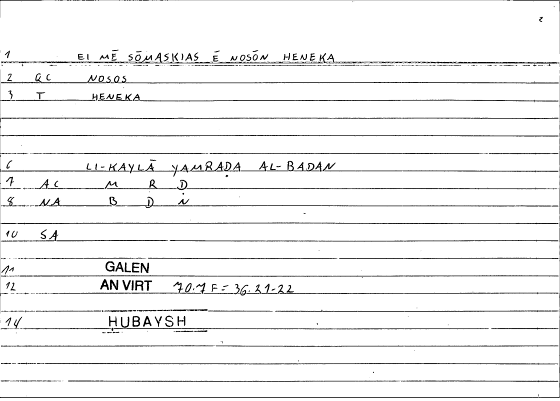 1 EI MĒ SŌMASKIAS Ē NOSŌN HENEKA
2 QC NOSOS
3 T HENEKA
6 LI-KAYLĀ YAMRAḌA AL-BADAN
7 AC M R Ḍ
8 NA B D N
10 SA
11 GALEN
12 AN VIRT 70.7 F = 36.21-22
14 ḤUBAYSH